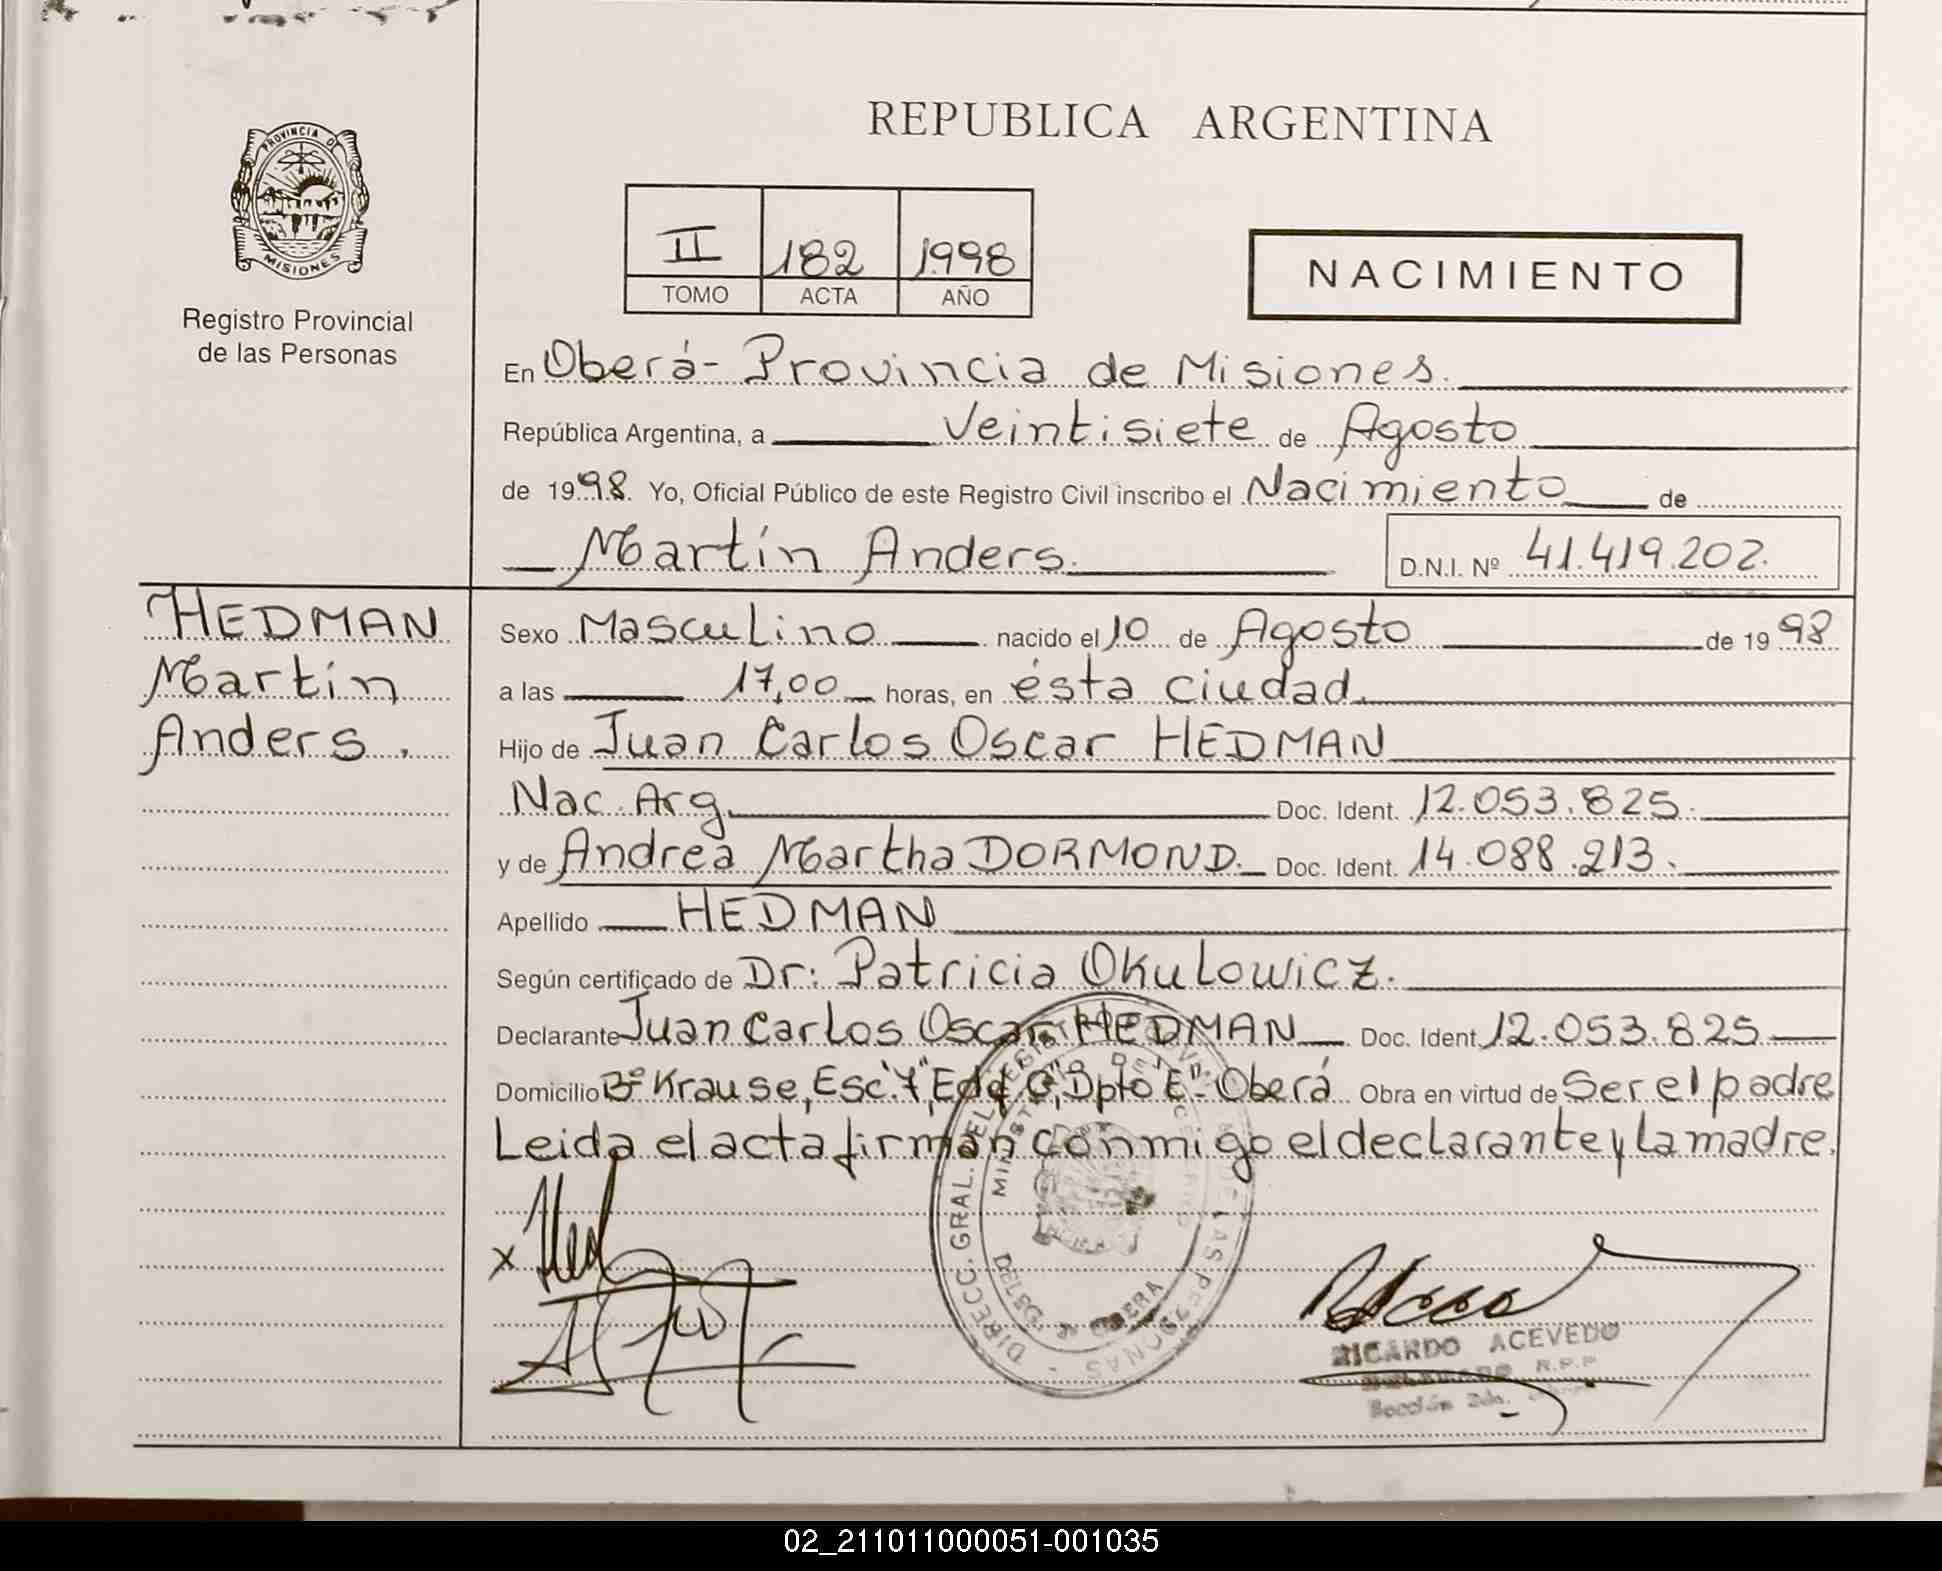 PROVINCIA DE
MISIONES
Registro Provincial
de las Personas
REPUBLICA ARGENTINA
II 182 1998
TOMO ACTA AÑO
NACIMIENTO
En Oberá - Provincia de Misiones.
República Argentina, a Veintisiete de Agosto
de 1998. Yo, Oficial Público de este Registro Civil inscribo el Nacimiento de
Martín Anders.
D.N.I. Nº 41.419.202.
HEDMAN
Martín
Anders.
Sexo Masculino nacido el 10 de Agosto de 1998
a las 17,00 horas, en ésta ciudad.
Hijo de Juan Carlos Oscar HEDMAN
Nac. Arg. Doc. Ident. 12.053.825.
y de Andrea Martha DORMOND. Doc. Ident. 14.088.213.
Apellido HEDMAN
Según certificado de Dr: Patricia Okulowicz.
Declarante Juan Carlos Oscar HEDMAN Doc. Ident. 12.053.825
Domicilio Bº Krause, Esc. Edf. Dpto "E" - Oberá Obra en virtud de Ser el padre
Leida el acta firman conmigo el declarante y la madre.
x
DIRECC. GRAL. DEL REGISTRO DE LAS PERSONAS
OBERA
RICARDO ACEVEDO
R.P.P.
Sección 2da.
02_211011000051-001035